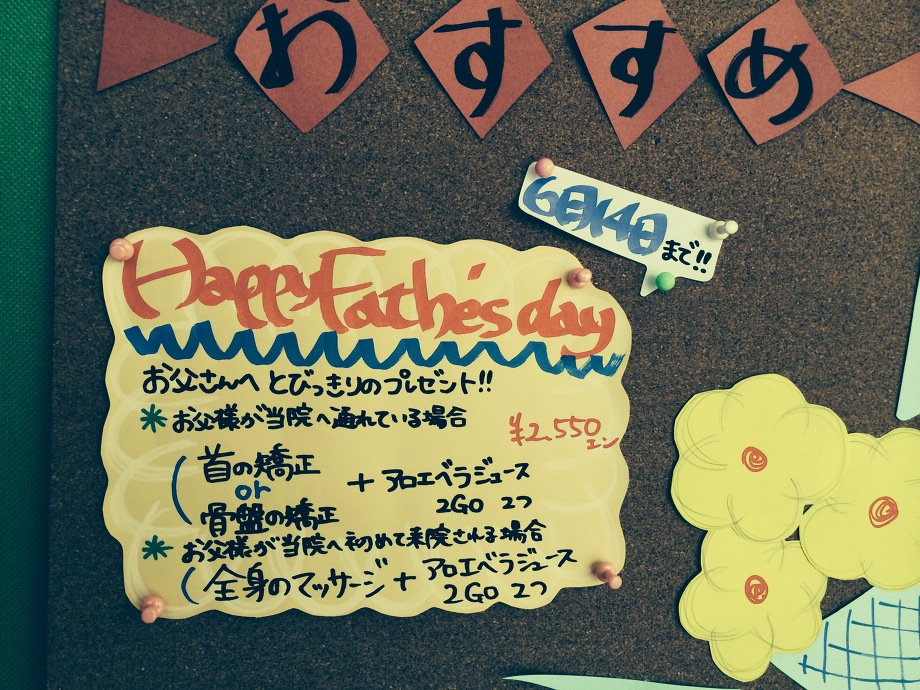 おすすめ
6月14日まで!!
Happy Father's day
お父さんへ とびっきりのプレゼント!!
* お父様が当院へ通れている場合
¥2,550エン
首の矯正
or
骨盤の矯正
+ アロエベラジュース
2GO 2つ
* お父様が当院へ初めて来院される場合
全身のマッサージ + アロエベラジュース
2GO 2つ